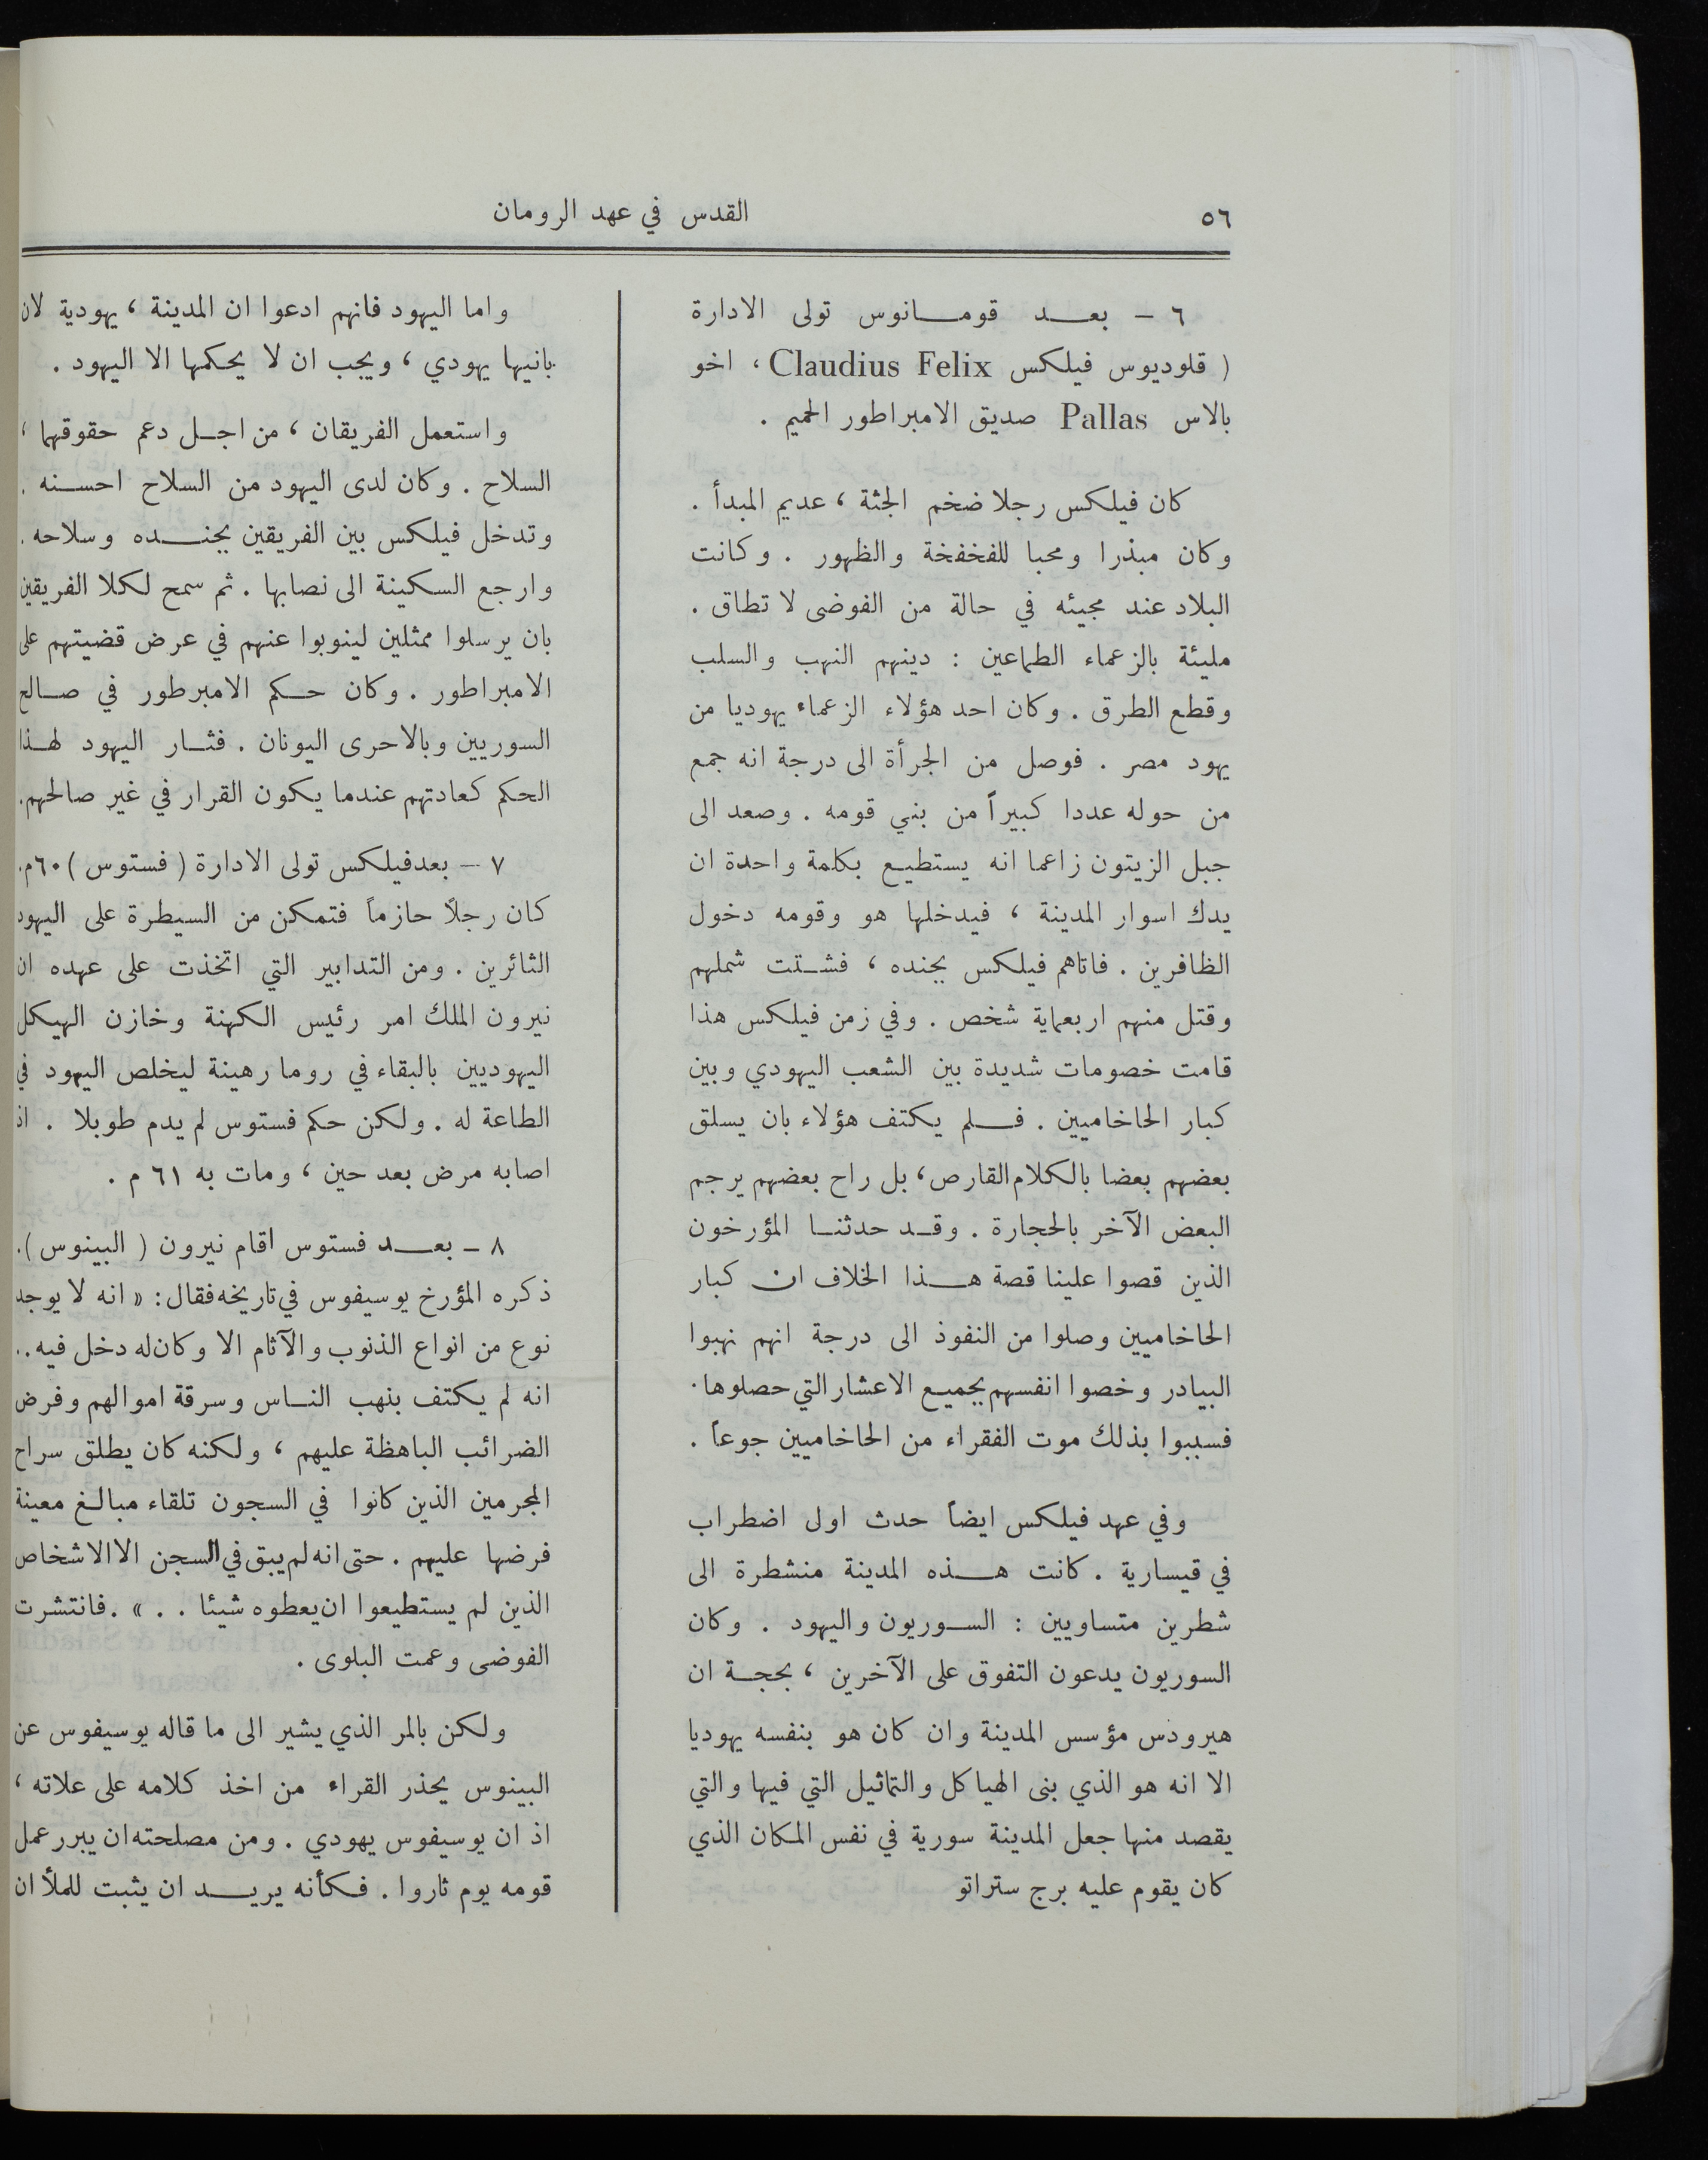 ٥٦
القدس في عهد الرومان
٦ – بعد قومانوس تولى الادارة
( قلوديوس فيلكس Claudius Felix ، اخو
بالاس Pallas صديق الامبراطور الحميم .
كان فيلكس رجلا ضخم الجثة ، عديم المبدأ .
وكان مبذرا ومحبا للفخفخة والظهور . وكانت
البلاد عند مجيئه في حالة من الفوضى لا تطاق .
مليئة بالزعماء الطماعين : دينهم النهب والسلب
وقطع الطرق . وكان احد هؤلاء الزعماء يهوديا من
يهود مصر . فوصل من الجرأة الى درجة انه جمع
من حوله عددا كبيراً من بني قومه . وصعد الى
جبل الزيتون زاعما انه يستطيع بكلمة واحدة ان
يدك اسوار المدينة ، فيدخلها هو وقومه دخول
الظافرين . فاتاهم فيلكس بجنده ، فشتت شملهم
وقتل منهم اربعماية شخص . وفي زمن فيلكس هذا
قامت خصومات شديدة بين الشعب اليهودي وبين
كبار الحاخاميين . فلم يكتف هؤلاء بان يسلق
بعضهم بعضا بالكلام القارص ، بل راح بعضهم يرجم
البعض الآخر بالحجارة . وقد حدثنا المؤرخون
الذين قصوا علينا قصة هذا الخلاف ان كبار
الحاخاميين وصلوا من النفوذ الى درجة انهم نهبوا
البيادر وخصوا انفسهم بجميع الاعشار التي حصلوها .
فسببوا بذلك موت الفقراء من الحاخاميين جوعاً .
وفي عهد فيلكس ايضاً حدث اول اضطراب
في قيسارية . كانت هذه المدينة منشطرة الى
شطرين متساويين : السوريون واليهود . وكان
السوريون يدعون التفوق على الآخرين ، بحجة ان
هيرودس مؤسس المدينة وان كان هو بنفسه يهوديا
الا انه هو الذي بنى الهياكل والتماثيل التي فيها والتي
يقصد منها جعل المدينة سورية في نفس المكان الذي
كان يقوم عليه برج ستراتو
واما اليهود فانهم ادعوا ان المدينة ، يهودية لان
بانيها يهودي ، ويجب ان لا يحكمها الا اليهود .
واستعمل الفريقان ، من اجل دعم حقوقهما ،
السلاح . وكان لدى اليهود من السلاح احسنه .
وتدخل فيلكس بين الفريقين بجنده وسلاحه .
وارجع السكينة الى نصابها . ثم سمح لكلا الفريقين
بان يرسلوا ممثلين لينوبوا عنهم في عرض قضيتهم على
الامبراطور . وكان حكم الامبرطور في صالح
السوريين وبالاحرى اليونان . فثار اليهود لهذا
الحكم كعادتهم عندما يكون القرار في غير صالحهم.
٧ – بعدفيلكس تولى الادارة ( فستوس ) ٦٠م.
كان رجلاً حازماً فتمكن من السيطرة على اليهود
الثائرين . ومن التدابير التي اتخذت على عهده ان
نيرون الملك امر رئيس الكهنة وخازن الهيكل
اليهوديين بالبقاء في روما رهينة ليخلص اليهود في
الطاعة له . ولكن حكم فستوس لم يدم طويلا . اذ
اصابه مرض بعد حين ، ومات به ٦١ م .
٨ – بعد فستوس اقام نيرون ( البينوس ).
ذكره المؤرخ يوسيفوس في تاريخه فقال : « انه لا يوجد
نوع من انواع الذنوب والآثام الا وكان له دخل فيه ..
انه لم يكتف بنهب الناس وسرقة اموالهم وفرض
الضرائب الباهظة عليهم ، ولكنه كان يطلق سراح
المجرمين الذين كانوا في السجون تلقاء مبالغ معينة
فرضها عليهم . حتى انه لم يبق في السجن الا الاشخاص
الذين لم يستطيعوا ان يعطوه شيئا . . » . فانتشرت
الفوضى وعمت البلوى .
ولكن بالمر الذي يشير الى ما قاله يوسيفوس عن
البينوس يحذر القراء من اخذ كلامه على علاته ،
اذ ان يوسيفوس يهودي . ومن مصلحته ان يبرر عمل
قومه يوم ثاروا . فكأنه يريد ان يثبت للملأ ان